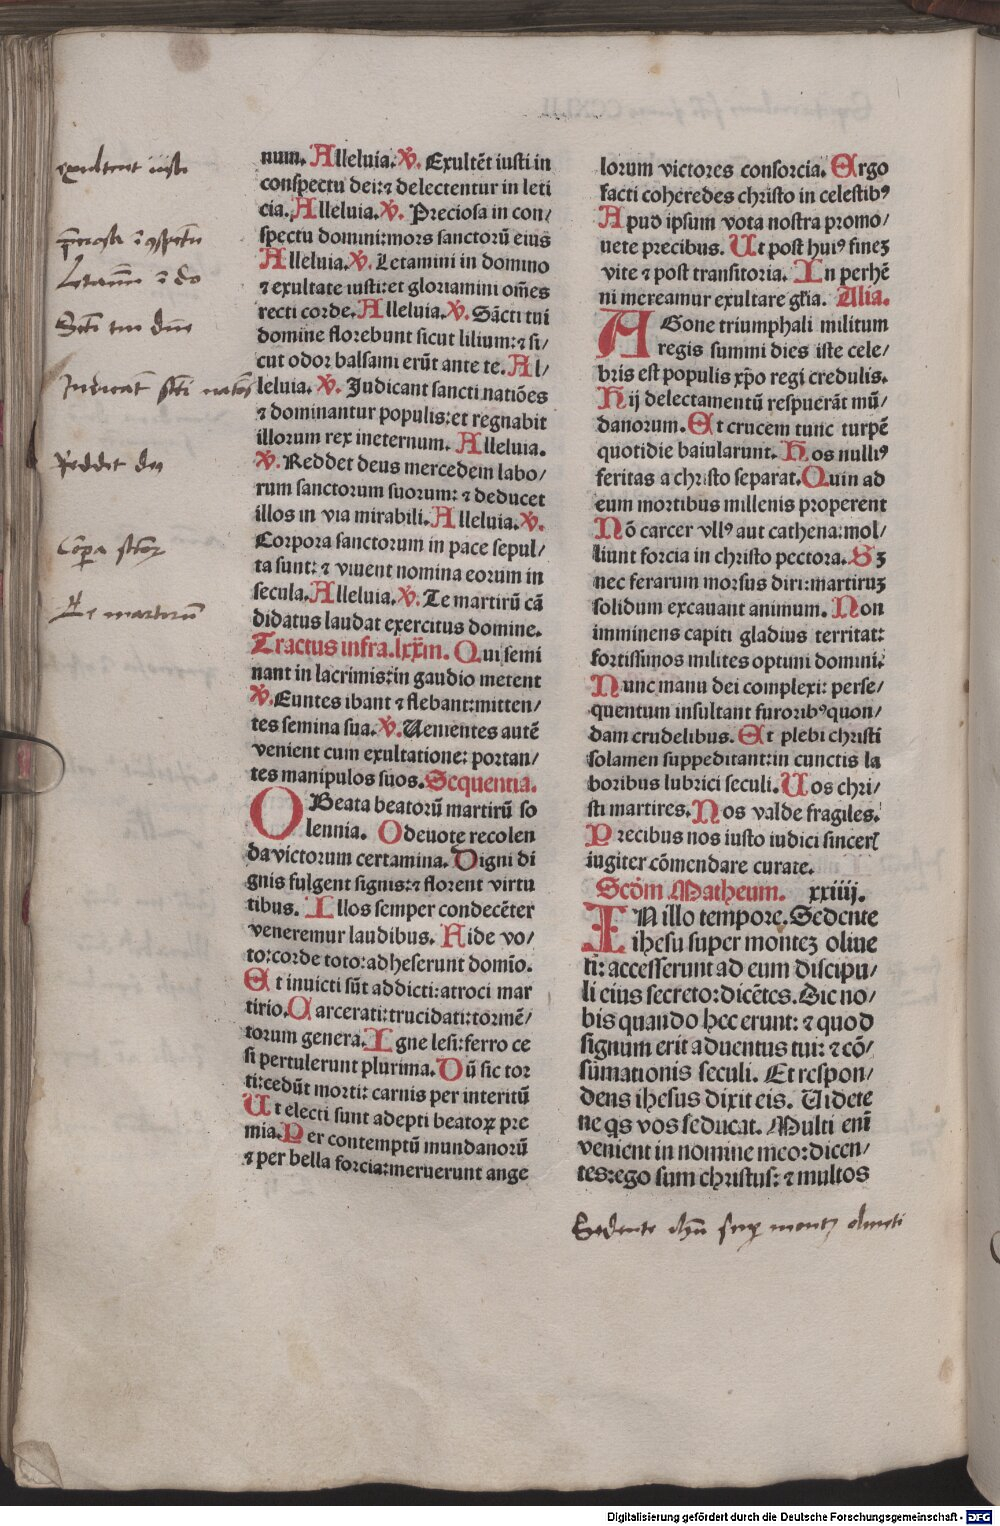 exultent iusti
Letamini i do
Reddet ds
num. Alleluia. ℣. Exultēt iusti in
conspectu dei: ⁊ delectentur in leti
cia. Alleluia. ℣. Preciosa in con/
spectu domini: mors sanctorū eius
Alleluia. ℣. Letamini in domino
⁊ exultate iusti: et gloriamini om̄es
recti corde. Alleluia. ℣. Sācti tui
domine florebunt sicut lilium: ⁊ si/
cut odor balsami erūt ante te. Al/
leluia. ℣. Judicant sancti natiōes
⁊ dominantur populis: et regnabit
illorum rex ineternum. Alleluia.
℣. Reddet deus mercedem labo/
rum sanctorum suorum: ⁊ deducet
illos in via mirabili. Alleluia. ℣.
Corpora sanctorum in pace sepul/
ta sunt: ⁊ viuent nomina eorum in
secula. Alleluia. ℣. Te martirū cā
didatus laudat exercitus domine.
Tractus infra. lxxiii. Qui semi
nant in lacrimis: in gaudio metent
℣. Euntes ibant ⁊ flebant: mitten/
tes semina sua. ℣. Uenientes autē
venient cum exultatione: portan/
tes manipulos suos. Sequentia.
O Beata beatorū martirū so
lennia. O deuote recolen
da victorum certamina. Digni di
gnis fulgent signis: ⁊ florent virtu
tibus. Illos semper condecēter
veneremur laudibus. Fide vo/
to: corde toto: adheserunt domīo.
Et inuicti sūt addicti: atroci mar
tirio. Carcerati: trucidati: tormē/
torum genera. Igne lesi: ferro ce
si pertulerunt plurima. Dū sic tor
ti: cedūt morti: carnis per interitū
Ut electi sunt adepti beatoꝝ pre
mia. Per contemptū mundanorū
⁊ per bella forcia: meruerunt ange
lorum victores consorcia. Ergo
facti coheredes christo in celestibꝰ
Apud ipsum vota nostra promo/
uete precibus. Ut post huiꝰ finez
vite ⁊ post transitoria. In perhē
ni mereamur exultare gl̄ia. Alia.
AGone triumphali militum
regis summi dies iste cele/
bris est populis xp̄o regi credulis.
Hij delectamentū respuerāt mū/
danorum. Et crucem tunc turpē
quotidie baiularunt. Hos nulliꝰ
feritas a christo separat. Quin ad
eum mortibus millenis properent
Nō carcer vllꝰ aut cathena: mol/
liunt forcia in christo pectora. Sꝫ
nec ferarum morsus diri: martiruꝫ
solidum excauant animum. Non
imminens capiti gladius territat:
fortissimos milites optimi domini.
Nunc manu dei complexi: perse/
quentum insultant furoribꝰ quon/
dam crudelibus. Et plebi christi
solamen suppeditant: in cunctis la
boribus lubrici seculi. Uos chri/
sti martires. Nos valde fragiles.
Precibus nos iusto iudici sincerł
iugiter cōmendare curate.
Scd̄m Matheum. xxiiij.
IN illo tempore. Sedente
ihesu super montez oliue
ti: accesserunt ad eum discipu/
li eius secreto: dicētes. Dic no/
bis quando hec erunt: ⁊ quod
signum erit aduentus tui: ⁊ cō/
sūmationis seculi. Et respon/
dens ihesus dixit eis. Uidete
ne qs vos seducat. Multi enī
venient in nomine meo: dicen/
tes: ego sum christus: ⁊ multos
Sedente ihū sup montꝫ oliueti
Digitalisierung gefördert durch die Deutsche Forschungsgemeinschaft - DFG